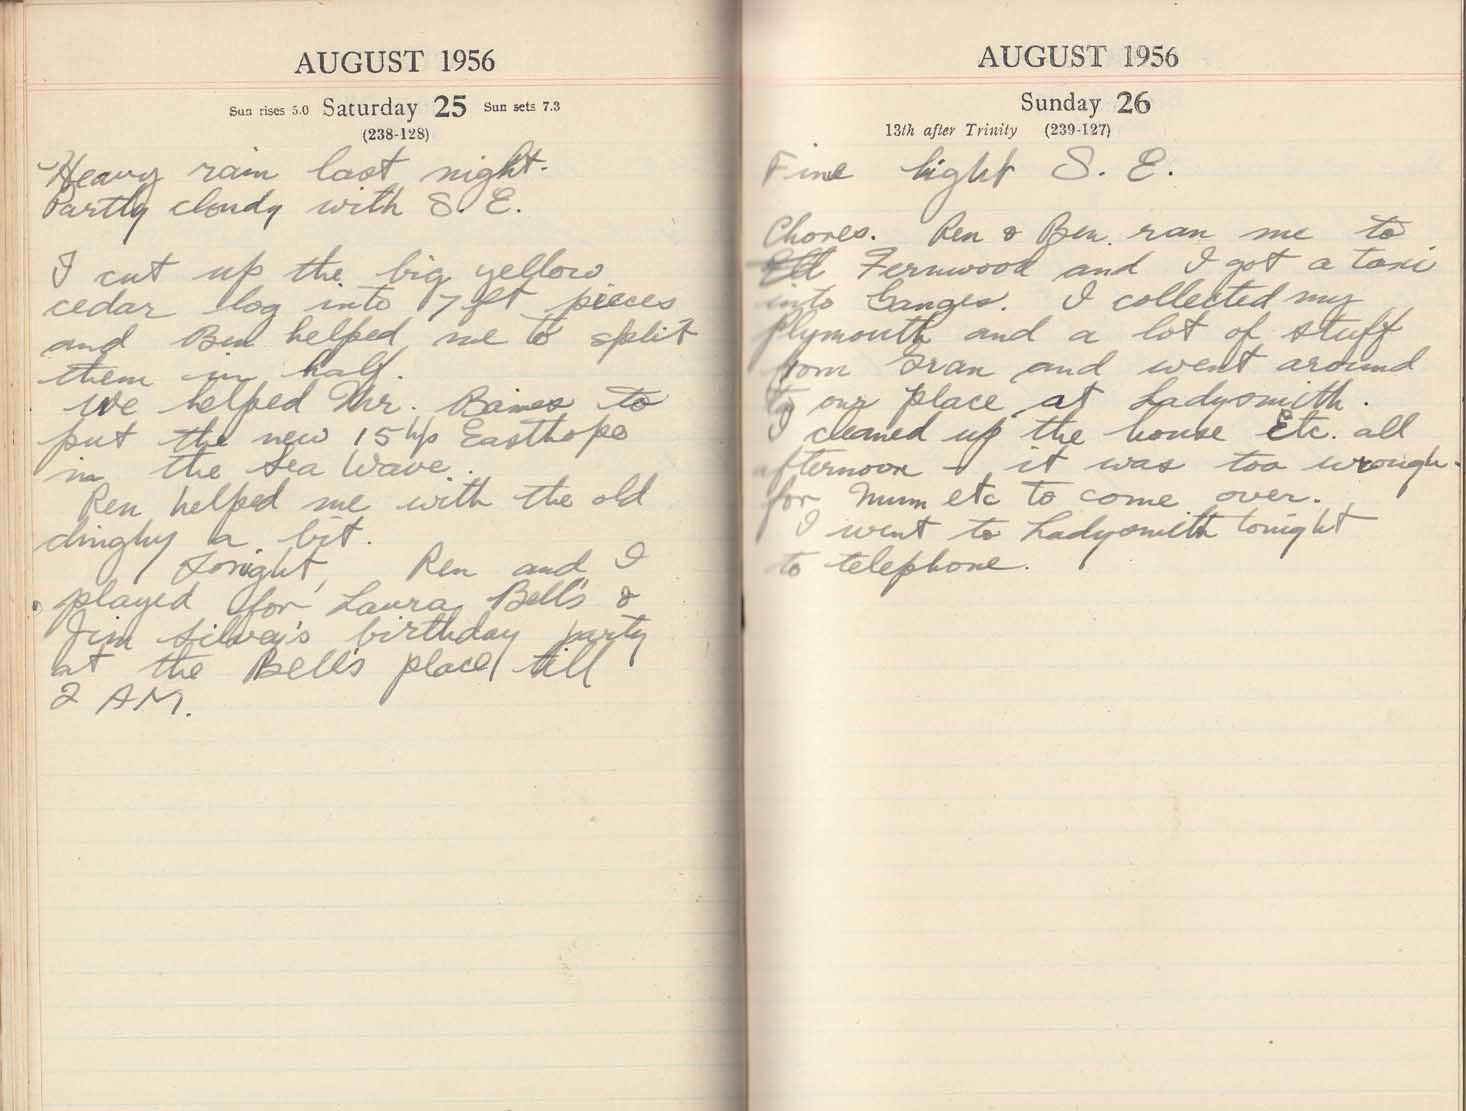 AUGUST 1956
Sun rises 5.0 Saturday 25 Sun sets 7.3
(238-128)
Heavy rain last night.
Partly cloudy with S. E.
I cut up the big yellow
cedar log into 7 ft pieces
and Ben helped me to split
them in half.
We helped Mr. Baines to
put the new 15 h/p Easthope
in the Sea Wave.
Ren helped me with the old
dinghy a bit.
Tonight, Ren and I
played for Laura Bell's &
Jim Silvey's birthday party
at the Bell's place till
2 AM.
AUGUST 1956
Sunday 26
13th after Trinity (239-127)
Fine light S. E.
Chores. Ren & Ben ran me to
Fernwood and I got a taxi
into Ganges. I collected my
Plymouth and a lot of stuff
from Gran and went around
to our place at Ladysmith.
I cleaned up the house Etc. all
afternoon - it was too wrough
for Mum etc to come over.
I went to Ladysmith tonight
to telephone.